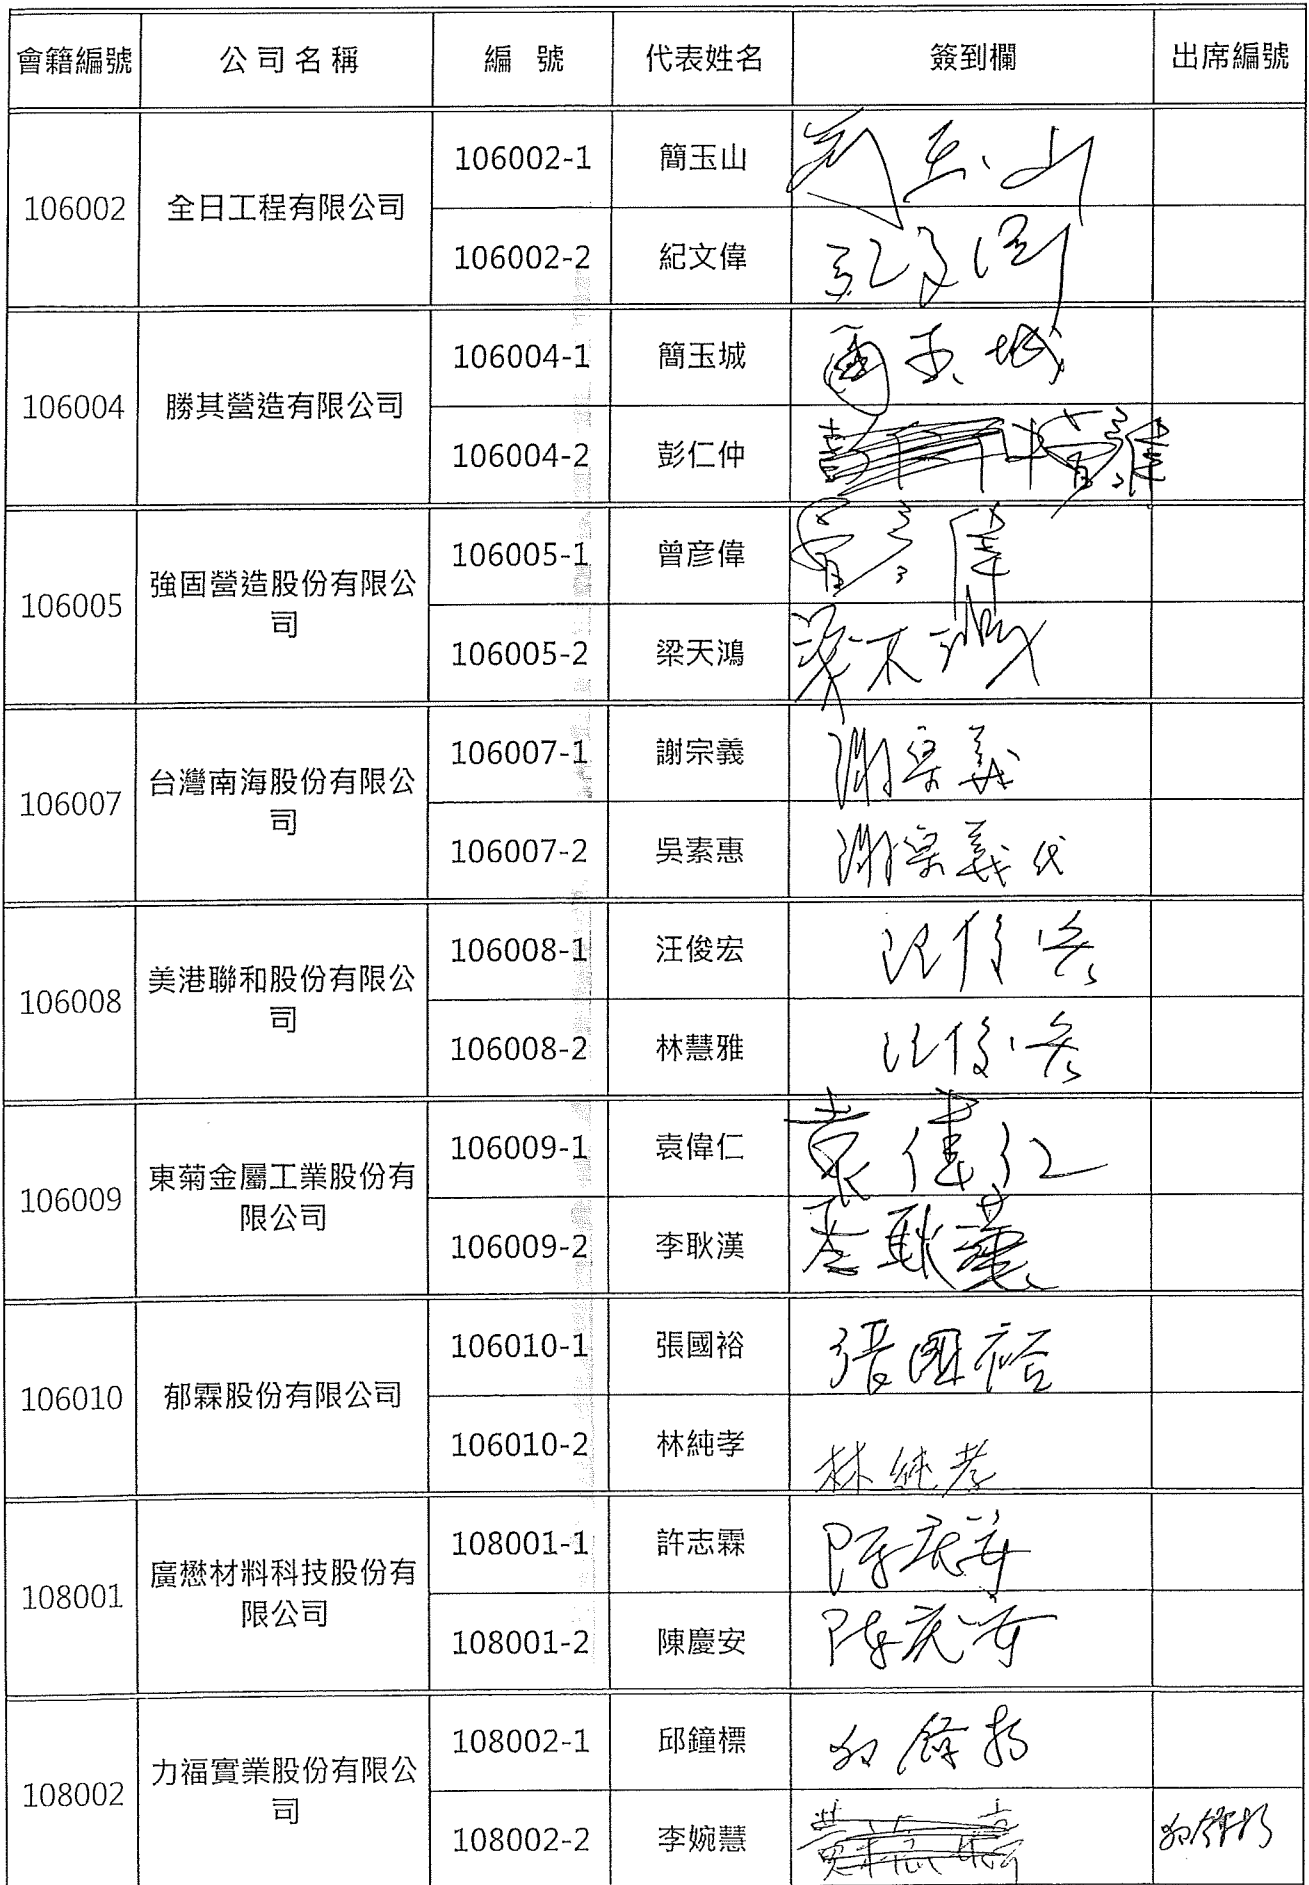 會籍編號 公司名稱 編 號 代表姓名 簽到欄 出席編號
106002 全日工程有限公司
106002-1 簡玉山 簡玉山
106002-2 紀文偉 紀文偉
106004 勝其營造有限公司
106004-1 簡玉城 簡玉城
106004-2 彭仁仲 彭仁仲 曾彥偉
106005 強固營造股份有限公
司
106005-1 曾彥偉 曾彥偉
106005-2 梁天鴻 梁天鴻
106007 台灣南海股份有限公
司
106007-1 謝宗義 謝宗義
106007-2 吳素惠 謝宗義代
106008 美港聯和股份有限公
司
106008-1 汪俊宏 汪俊宏
106008-2 林慧雅 汪俊宏
106009 東菊金屬工業股份有
限公司
106009-1 袁偉仁 袁偉仁
106009-2 李耿漢 李耿漢
106010 郁霖股份有限公司
106010-1 張國裕 張國裕
106010-2 林純孝 林純孝
108001 廣懋材料科技股份有
限公司
108001-1 許志霖 陳慶安
108001-2 陳慶安 陳慶安
108002 力福實業股份有限公
司
108002-1 邱鐘標 邱鐘標
108002-2 李婉慧 邱鐘標